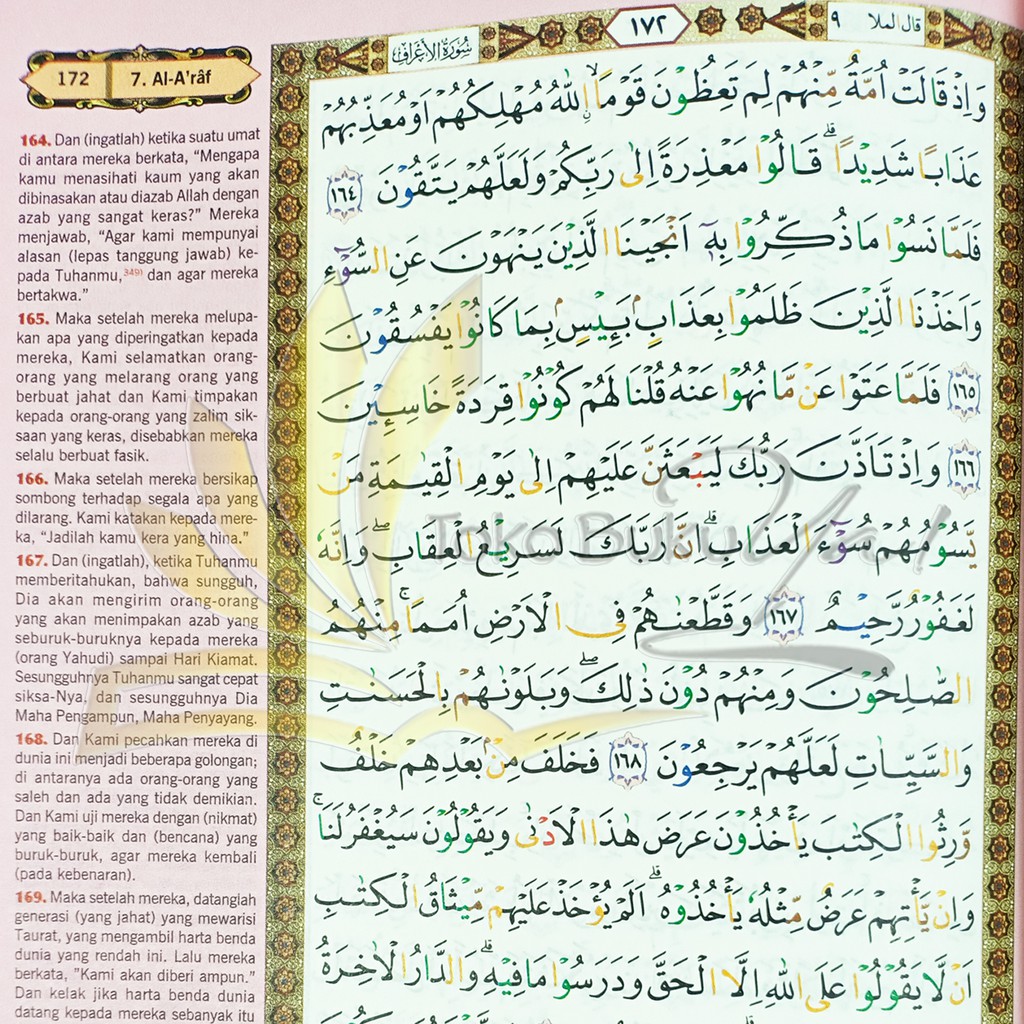 172 7. Al-A'râf
سُوْرَةُ الْأَعْرَافِ ١٧٢ قال الملأ ٩
164. Dan (ingatlah) ketika suatu umat
di antara mereka berkata, “Mengapa
kamu menasihati kaum yang akan
dibinasakan atau diazab Allah dengan
azab yang sangat keras?” Mereka
menjawab, “Agar kami mempunyai
alasan (lepas tanggung jawab) ke-
pada Tuhanmu,349) dan agar mereka
bertakwa.”
165. Maka setelah mereka melupa-
kan apa yang diperingatkan kepada
mereka, Kami selamatkan orang-
orang yang melarang orang yang
berbuat jahat dan Kami timpakan
kepada orang-orang yang zalim sik-
saan yang keras, disebabkan mereka
selalu berbuat fasik.
166. Maka setelah mereka bersikap
sombong terhadap segala apa yang
dilarang. Kami katakan kepada mere-
ka, “Jadilah kamu kera yang hina.”
167. Dan (ingatlah), ketika Tuhanmu
memberitahukan, bahwa sungguh,
Dia akan mengirim orang-orang
yang akan menimpakan azab yang
seburuk-buruknya kepada mereka
(orang Yahudi) sampai Hari Kiamat.
Sesungguhnya Tuhanmu sangat cepat
siksa-Nya, dan sesungguhnya Dia
Maha Pengampun, Maha Penyayang.
168. Dan Kami pecahkan mereka di
dunia ini menjadi beberapa golongan;
di antaranya ada orang-orang yang
saleh dan ada yang tidak demikian.
Dan Kami uji mereka dengan (nikmat)
yang baik-baik dan (bencana) yang
buruk-buruk, agar mereka kembali
(pada kebenaran).
169. Maka setelah mereka, datanglah
generasi (yang jahat) yang mewarisi
Taurat, yang mengambil harta benda
dunia yang rendah ini. Lalu mereka
berkata, ”Kami akan diberi ampun.”
Dan kelak jika harta benda dunia
datang kepada mereka sebanyak itu
وَاِذْ قَالَتْ اُمَّةٌ مِّنْهُمْ لِمَ تَعِظُوْنَ قَوْمًاۙ ۨاللّٰهُ مُهْلِكُهُمْ اَوْ مُعَذِّبُهُمْ
عَذَابًا شَدِيْدًاۗ قَالُوْا مَعْذِرَةً اِلٰى رَبِّكُمْ وَلَعَلَّهُمْ يَتَّقُوْنَ ١٦٤
فَلَمَّا نَسُوْا مَا ذُكِّرُوْا بِهٖٓ اَنْجَيْنَا الَّذِيْنَ يَنْهَوْنَ عَنِ السُّوْۤءِ
وَاَخَذْنَا الَّذِيْنَ ظَلَمُوْا بِعَذَابٍۢ بَـِٔيْسٍۢ بِمَا كَانُوْا يَفْسُقُوْنَ
١٦٥ فَلَمَّا عَتَوْا عَنْ مَّا نُهُوْا عَنْهُ قُلْنَا لَهُمْ كُوْنُوْا قِرَدَةً خَاسِـِٕيْنَ
١٦٦ وَاِذْ تَاَذَّنَ رَبُّكَ لَيَبْعَثَنَّ عَلَيْهِمْ اِلٰى يَوْمِ الْقِيٰمَةِ مَنْ
يَّسُوْمُهُمْ سُوْۤءَ الْعَذَابِۗ اِنَّ رَبَّكَ لَسَرِيْعُ الْعِقَابِۖ وَاِنَّهٗ
لَغَفُوْرٌ رَّحِيْمٌ ١٦٧ وَقَطَّعْنٰهُمْ فِى الْاَرْضِ اُمَمًاۚ مِنْهُمُ
الصّٰلِحُوْنَ وَمِنْهُمْ دُوْنَ ذٰلِكَۖ وَبَلَوْنٰهُمْ بِالْحَسَنٰتِ
وَالسَّيِّاٰتِ لَعَلَّهُمْ يَرْجِعُوْنَ ١٦٨ فَخَلَفَ مِنْۢ بَعْدِهِمْ خَلْفٌ
وَّرِثُوا الْكِتٰبَ يَأْخُذُوْنَ عَرَضَ هٰذَا الْاَدْنٰى وَيَقُوْلُوْنَ سَيُغْفَرُ لَنَاۚ
وَاِنْ يَّأْتِهِمْ عَرَضٌ مِّثْلُهٗ يَأْخُذُوْهُۗ اَلَمْ يُؤْخَذْ عَلَيْهِمْ مِّيْثَاقُ الْكِتٰبِ
اَنْ لَّا يَقُوْلُوْا عَلَى اللّٰهِ اِلَّا الْحَقَّ وَدَرَسُوْا مَا فِيْهِۗ وَالدَّارُ الْاٰخِرَةُ
Toko Buku